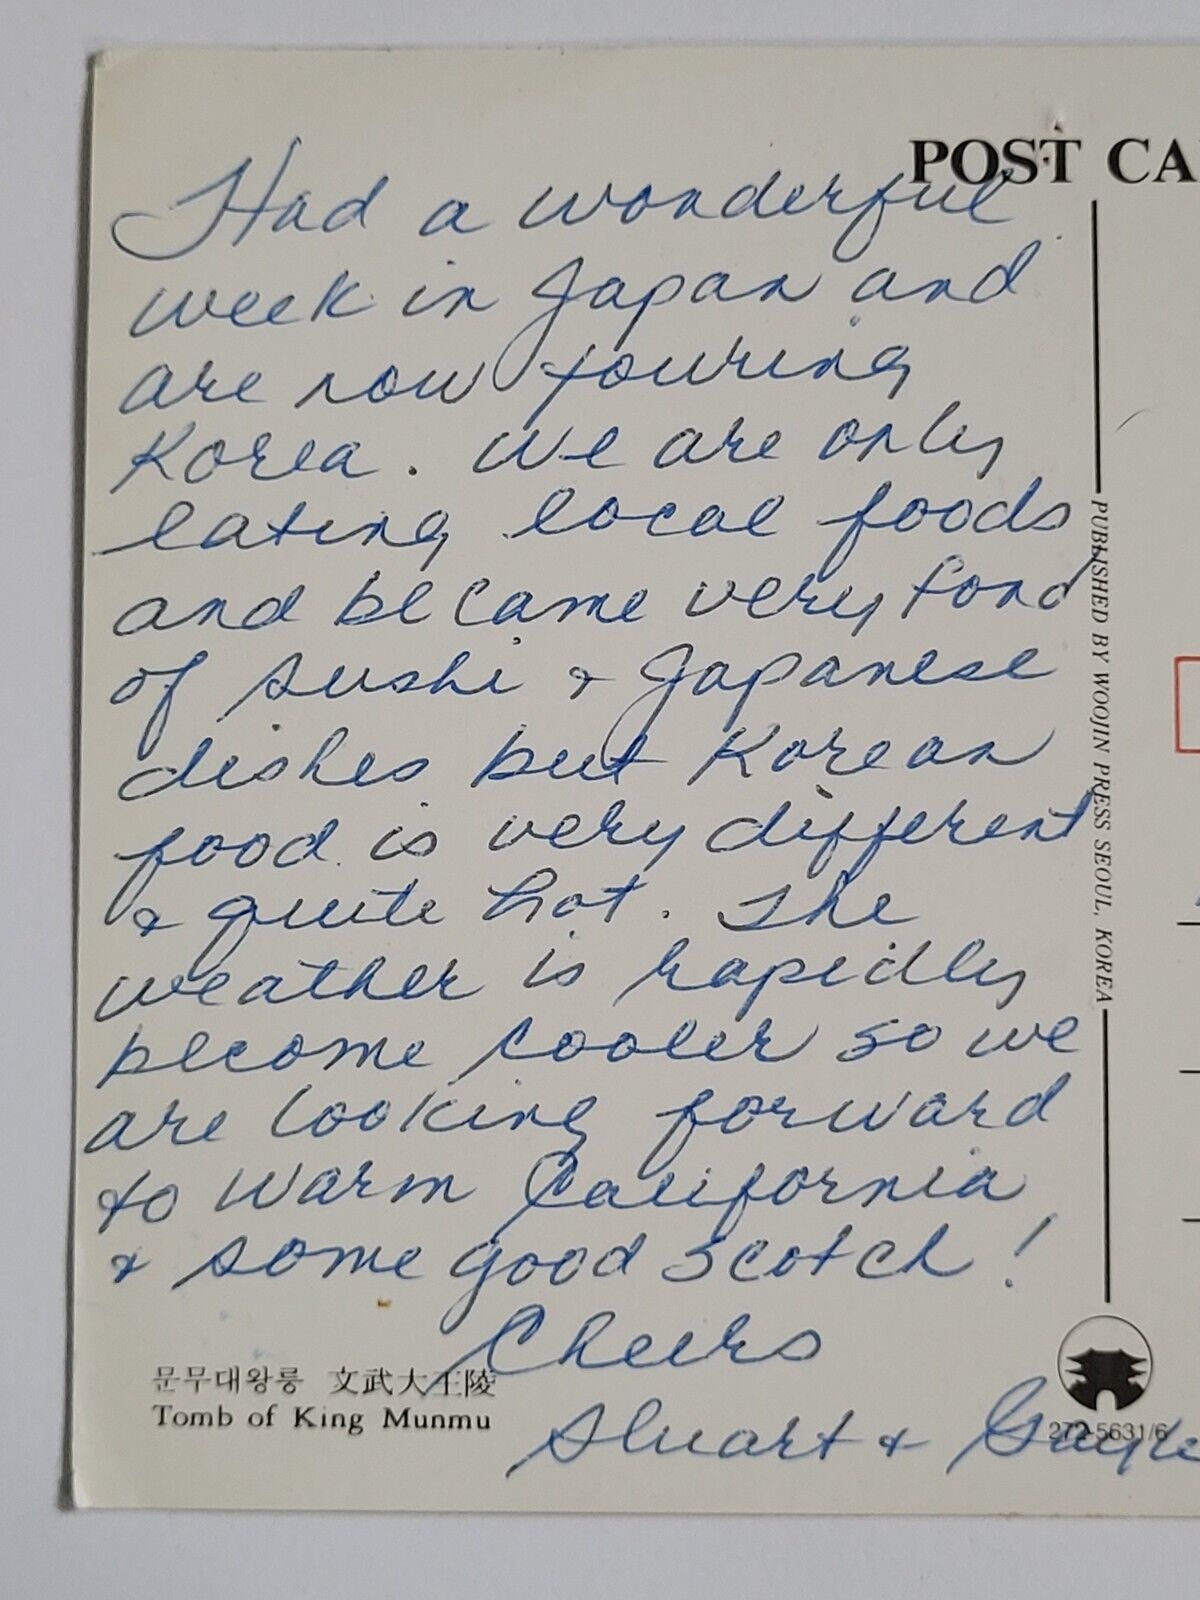 POST CA
Had a wonderful
week in Japan and
are now touring
Korea. We are only
eating local foods
and became very fond
of sushi & Japanese
dishes but Korean
food is very different
& quite hot. The
weather is rapidly
become cooler so we
are looking forward
to warm California
& some good scotch!
Cheers
Stuart &
문무대왕릉 文武大王陵
Tomb of King Munmu
PUBLISHED BY WOOJIN PRESS SEOUL, KOREA
272-5631/6